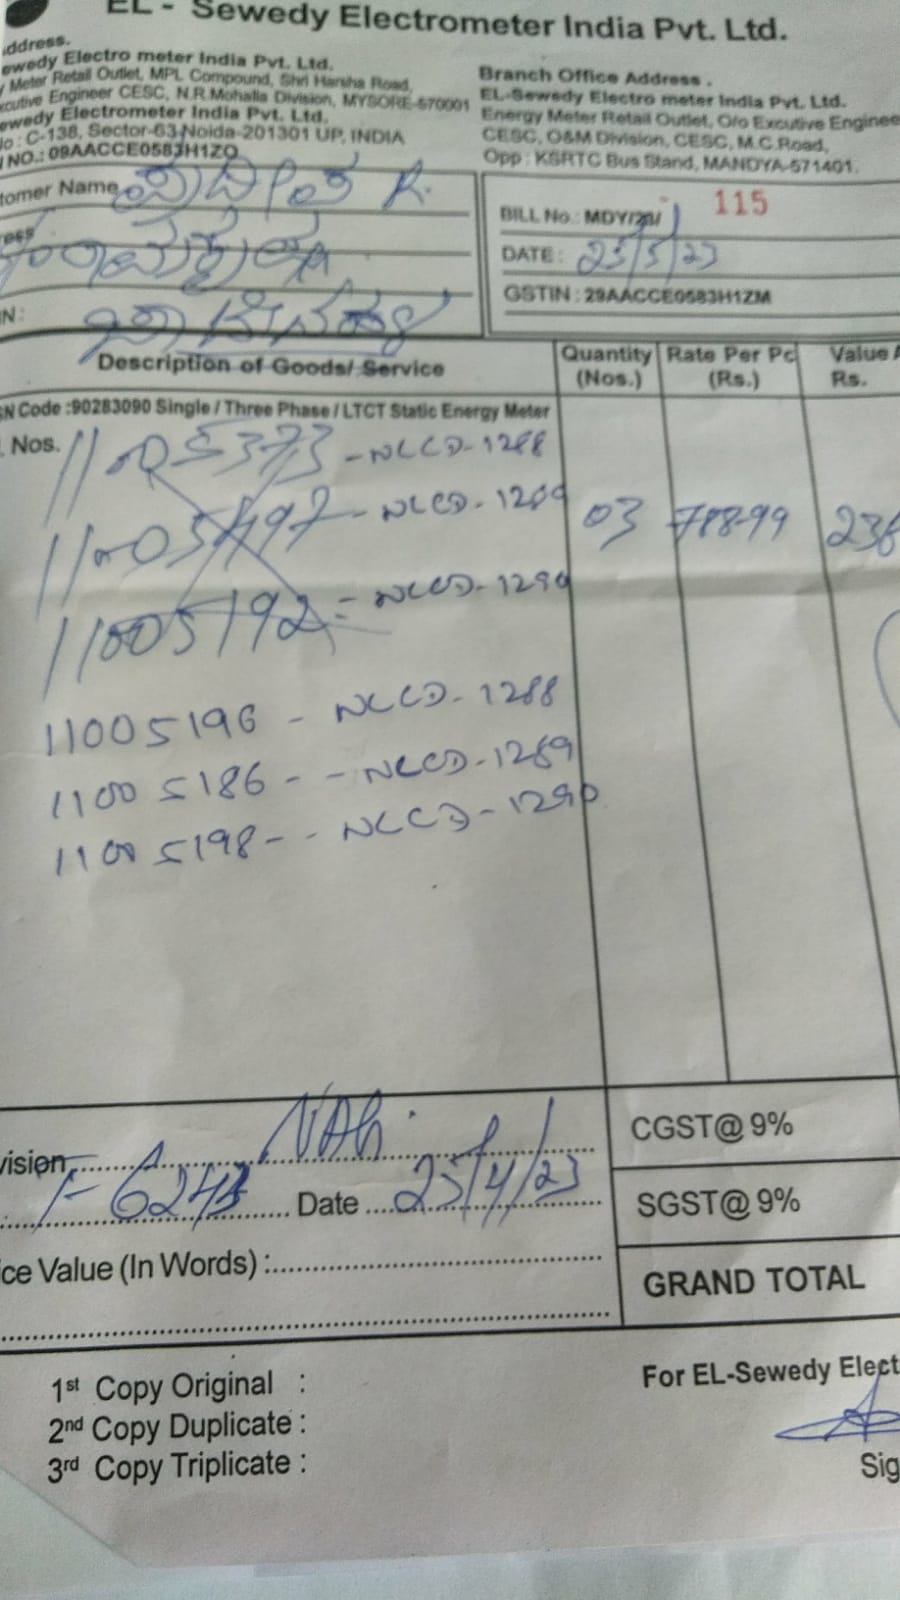 EL - Sewedy Electrometer India Pvt. Ltd.
ddress.
ewedy Electro meter India Pvt. Ltd.
Meter Retail Outlet, MPL Compound, Shri Harsha Road,
cutive Engineer CESC, N.R.Mohalla Division, MYSORE-570001
ewedy Electrometer India Pvt. Ltd.
No : C-138, Sector-63 Noida-201301 UP, INDIA
NO.: 09AACCE0583H1ZO
Branch Office Address .
EL-Sewedy Electro meter India Pvt. Ltd.
Energy Meter Retail Outlet, O/o Excutive Enginee
CESC, O&M Division, CESC, M.C.Road,
Opp : KSRTC Bus Stand, MANDYA-571401.
tomer Name R.
ress
N:
BILL No.: MDY/ 115
DATE : 25/5/23
GSTIN : 29AACCE0583H1ZM
Description of Goods/ Service Quantity (Nos.) Rate Per Pc (Rs.) Value A Rs.
SN Code :90283090 Single / Three Phase / LTCT Static Energy Meter
. Nos.
11005373 - NLCD-1288
- NLCD-1289 03 788-99 236
11005192 = NLCD-1290
11005196 - NLCD-1288
11005186 - - NLCD-1289
11005198 - - NLCD-1290
vision
Date 25/4/23
ice Value (In Words) :
CGST@ 9%
SGST@ 9%
GRAND TOTAL
1st Copy Original :
2nd Copy Duplicate :
3rd Copy Triplicate :
For EL-Sewedy Elect
Sig